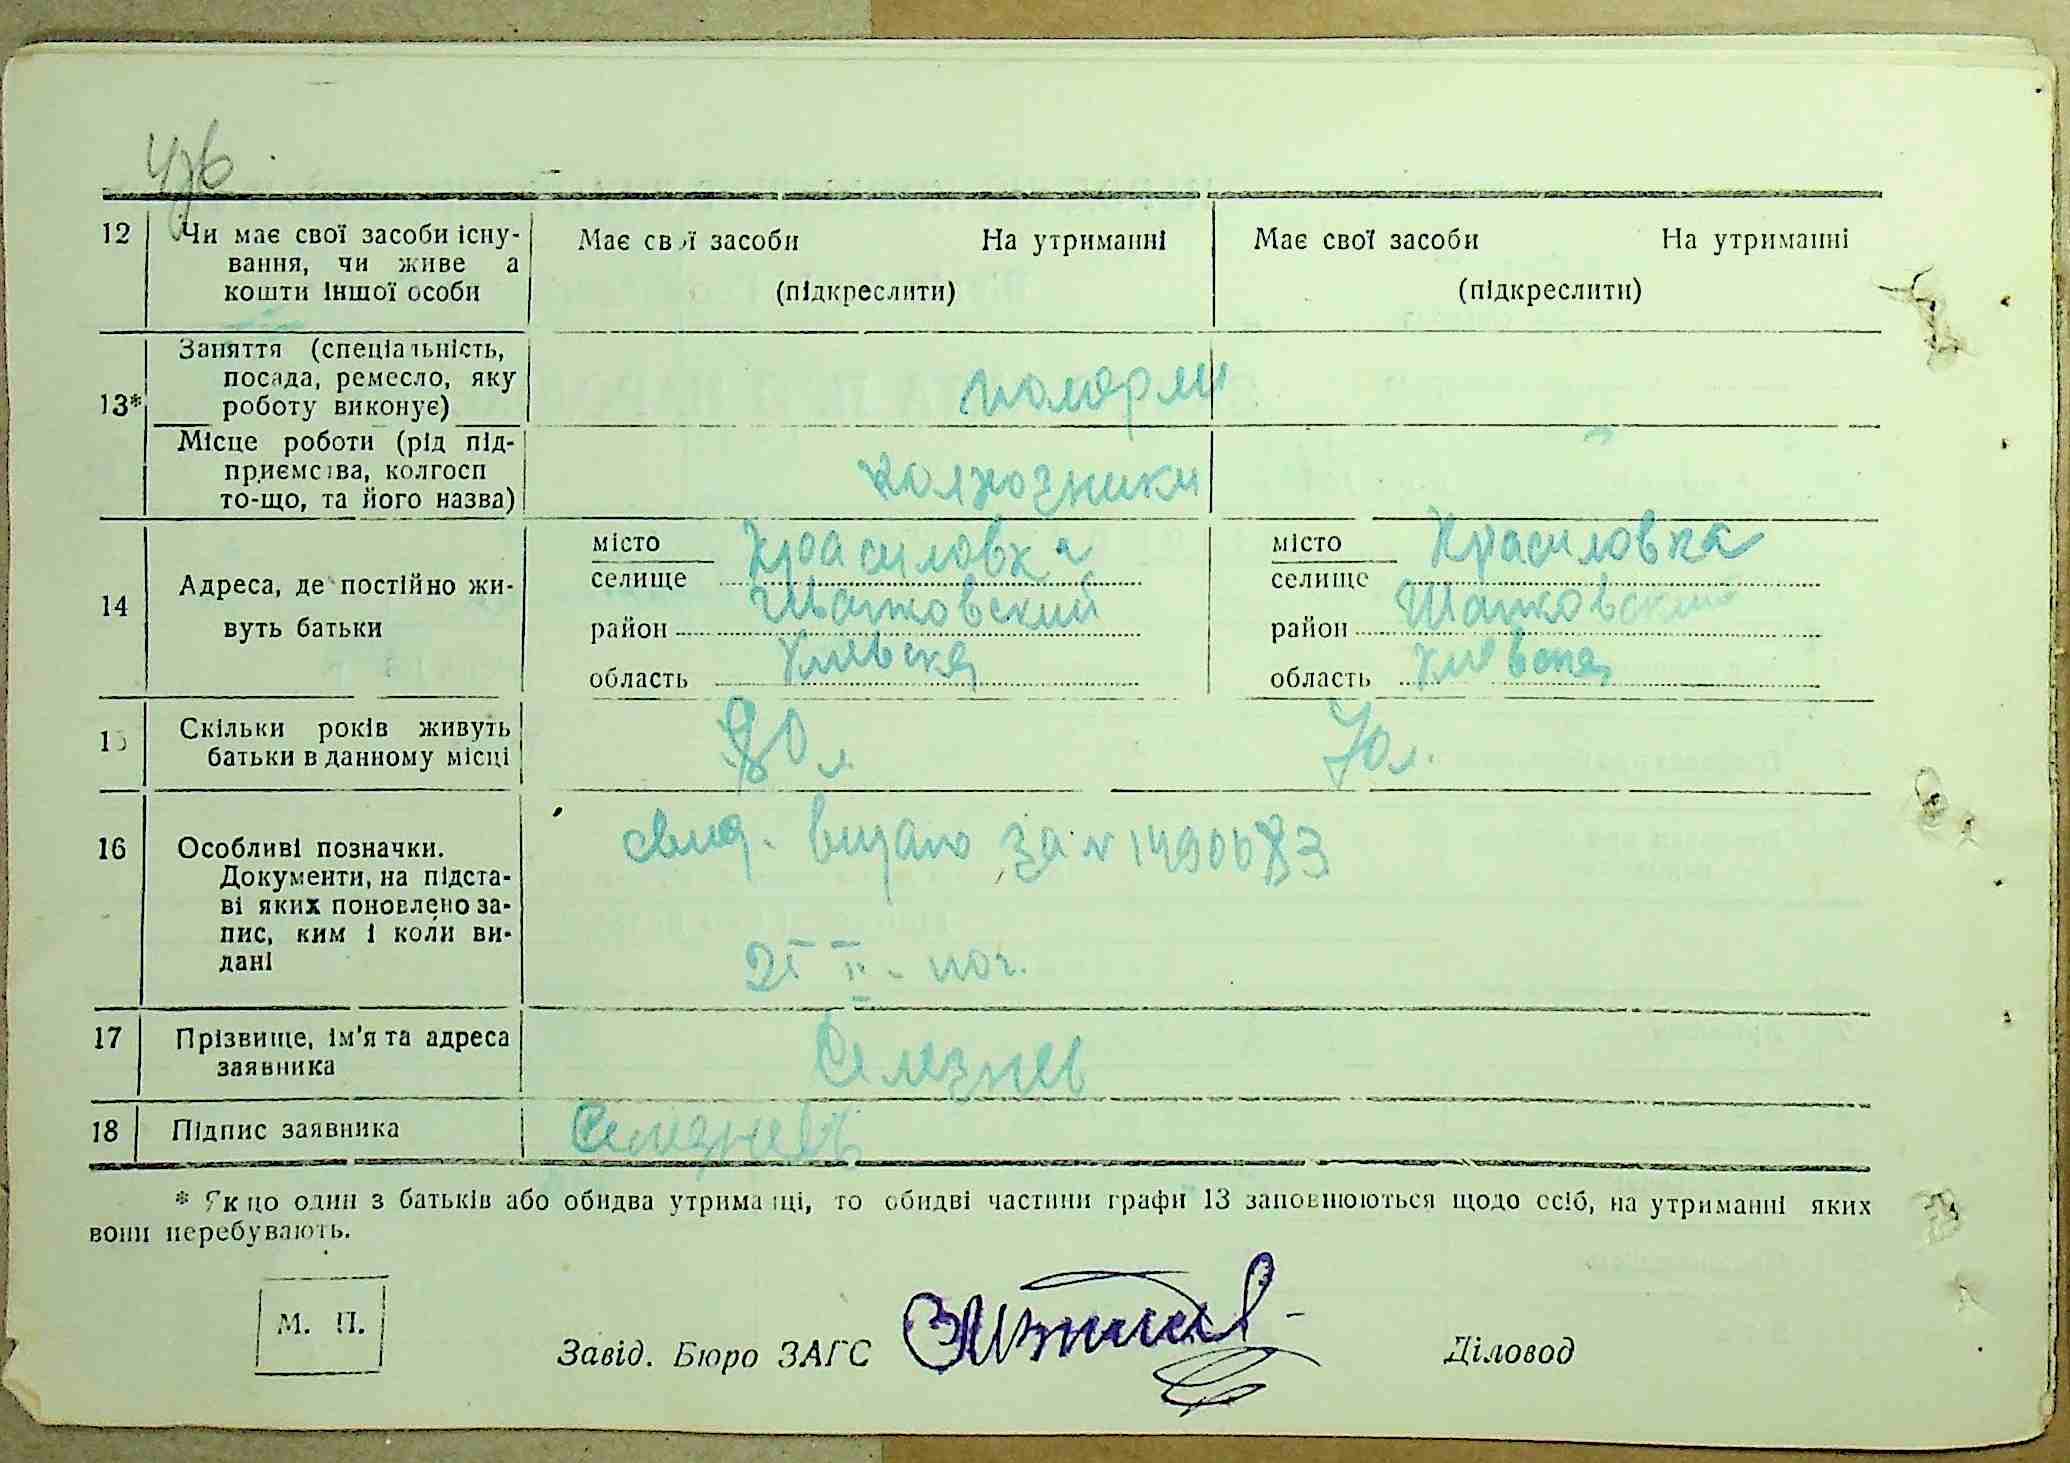 12 Чи має свої засоби існу-
вання, чи живе а
кошти іншої особи
Має свої засоби На утриманні
(підкреслити)
Має свої засоби На утриманні
(підкреслити)
13* Заняття (спеціальність,
посада, ремесло, яку
роботу виконує)
Місце роботи (рід під-
приємства, колгосп
то-що, та його назва)
колхозники
14 Адреса, де постійно жи-
вуть батьки
місто Красиловка
селище
район
область Киевска
місто Красиловка
селище
район
область Киевска
15 Скільки років живуть
батьки в данному місці
80 л 70 л.
16 Особливі позначки.
Документи, на підста-
ві яких поновлено за-
пис, ким і коли ви-
дані
свид. видано за N
17 Прізвище, ім'я та адреса
заявника
Селезнев
18 Підпис заявника
Селезнев
* Якщо один з батьків або обидва утриманці, то обидві частини графи 13 заповнюються щодо осіб, на утриманні яких
вони перебувають.
М. П.
Завід. Бюро ЗАГС Діловод